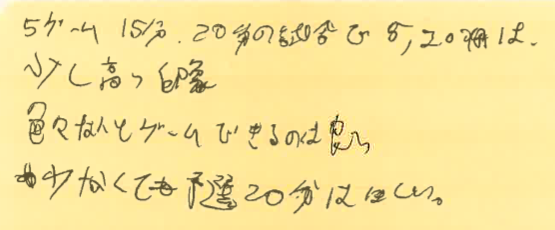 5ゲーム 15分.20分の試合で 5,20冊は、
少し高い印象
色々な人とゲームできるのは良い
少なくても予選20分はほしい。